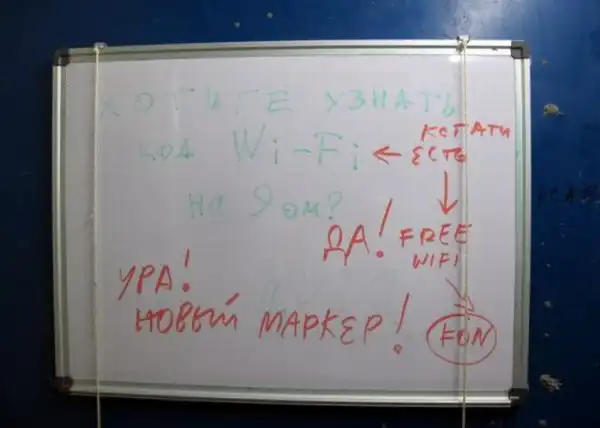 ХОТИТЕ УЗНАТЬ
код Wi-Fi ← КСТАТИ ЕСТЬ
на 9 ом?
ДА! FREE WIFI
УРА!
НОВЫЙ МАРКЕР!
FON